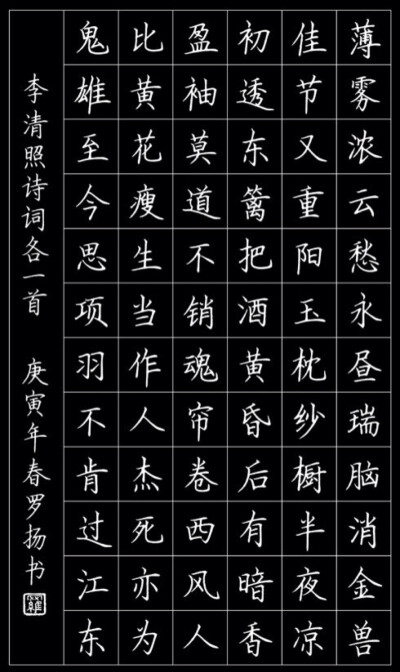 薄雾浓云愁永昼瑞脑消金兽
佳节又重阳玉枕纱橱半夜凉
初透东篱把酒黄昏后有暗香
盈袖莫道不销魂帘卷西风人
比黄花瘦生当作人杰死亦为
鬼雄至今思项羽不肯过江东
李清照诗词各一首 庚寅年春罗扬书